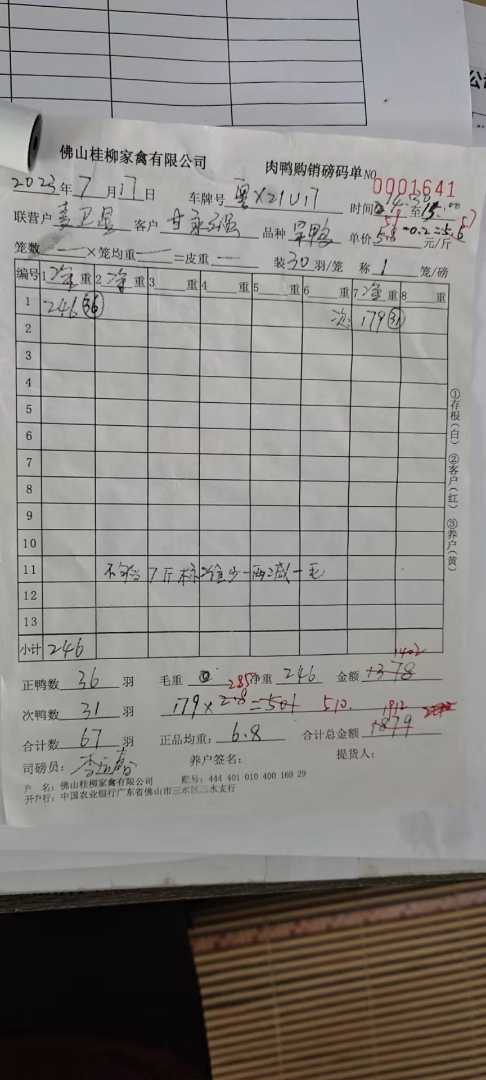 佛山桂柳家禽有限公司 肉鸭购销磅码单 NO 0001641
2023年7月17日 车牌号 粤X21U17 时间 至15:00
联营户 客户 品种 单价 5.8-0.2=5.6 元/斤 5.7
笼数 — ×笼均重 — =皮重 — 装30羽/笼 称1笼/磅
编号 1 净重 2 净重 3 重 4 重 5 重 6 重 7 净重 8 重
1 246 36 次: 179 31
2
3
4
5
6
7
8
9
10
11 不够7斤标准少一两减一毛
12
13
小计 246
①存根(白) ②客户(红) ③养户(黄)
正鸭数 36 羽 毛重 0 净重 246 金额 1378 1402
次鸭数 31 羽 179×2.8=501 2.85 510 1912
合计数 67 羽 正品均重: 6.8 合计总金额 1879
司磅员: 养户签名: 提货人:
户 名: 佛山桂柳家禽有限公司 账号: 444 401 010 400 160 29
开户行: 中国农业银行广东省佛山市三水区三水支行